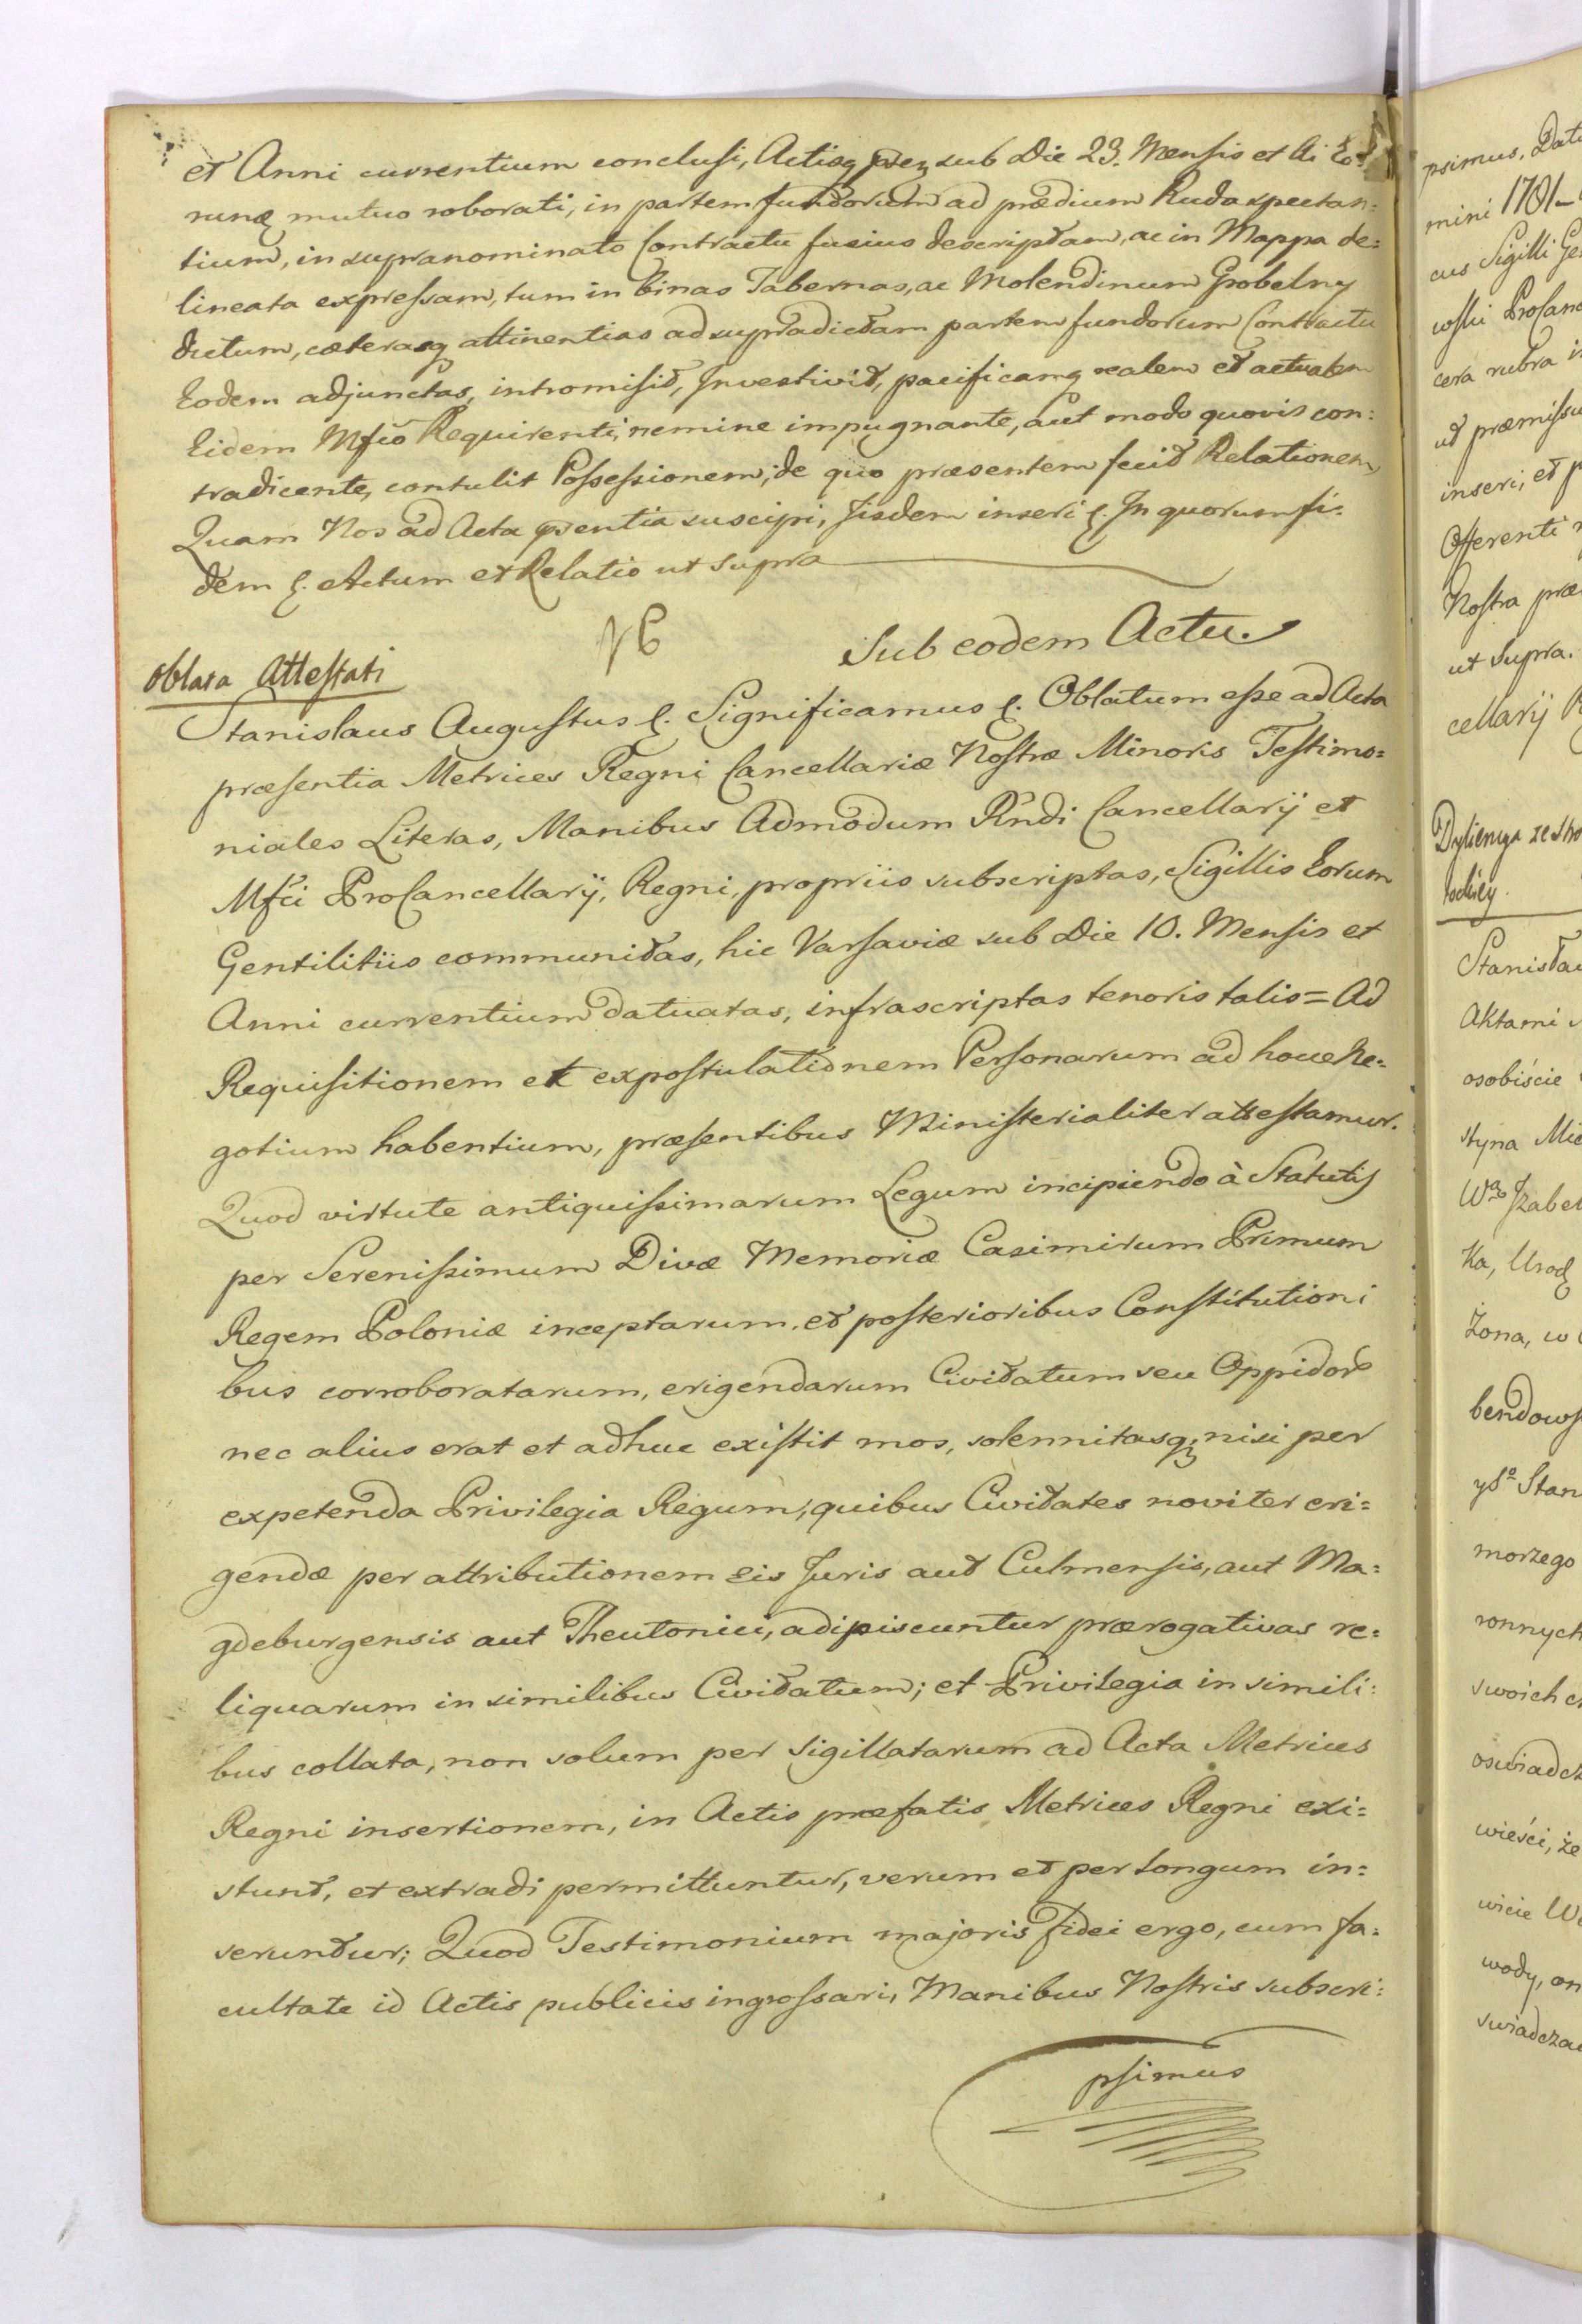 et Anni currentium conclusi, Actisq. pñtz. sub Die 23. Mensis et Ai Eo-
runq. mutuo roborati, in partem fundorum ad prædium Ruda spectan=
tium, in supranominato Contractu fusius descriptam, ac in Mappa de=
lineata expressam, tum in binas Tabernas, ac Molendinum Grobelny
dictum, cæterasq attinentias ad supradictam partem fundorum Contractu
Eodem adjunctas, intromisit, Investivit, pacificamq realem et actualem
Eidem Mfco Requirenti, nemine impugnante, aut modo quovis con=
tradicente, contulit Possessionem; de quo præsentem fecit Relationem,
Quam Nos ad Acta pñsentia suscipi, Iisdem inseri &. In quorum fi=
dem &. Actum et Relatio ut supra
Sub eodem Actu.
Oblata Attestati
Stanislaus Augustus &. Significamus &. Oblatum esse ad Acta
præsentia Metrices Regni Cancellariæ Nostræ Minoris Testimo=
niales Literas, Manibus Admodum Rndi Cancellarij et
Mfci ProCancellarij, Regni, propriis subscriptas, Sigillis Eorum
Gentilitiis communitas, hic Varsaviæ sub Die 10. Mensis et
Anni currentium datuatas, infrascriptas tenoris talis = Ad
Requisitionem et expostulationem Personarum ad hocce Ne=
gotium habentium, præsentibus Ministerialiter attestamur.
Quod virtute antiquissimarum Legum incipiendo à Statutis
per Serenissimum Divæ Memoriæ Casimirum Primum
Regem Poloniæ inceptarum, et posterioribus Constitutioni
bus corroboratarum, erigendarum Civitatum seu Oppidor
nec alius erat et adhuc existit mos, solennitasq, nisi per
expetenda Privilegia Regum, quibus Civitates noviter eri=
gendæ per attributionem eis Juris aut Culmensis, aut Ma=
gdeburgensis aut Theutonici, adipiscuntur prærogativas re=
liquarum in similibus Civitatum; et Privilegia in simili=
bus collata, non solum per Sigillatarum ad Acta Metrices
Regni insertionem, in Actis præfatis Metrices Regni exi=
stunt, et extradi permittuntur, verum et per longum in=
seruntur; Quod Testimonium majoris fidei ergo, cum fa=
cultate id Actis publicis ingrossari, Manibus Nostris subscri=
psimus
psimus, Dat
mini 1781_
cus Sigilli Ge
wski ProCanc
cera rubra i
ut præmissu
inseri, et p
Offerenti
Nostra præ
ut Supra.
cellarij R
Stanisła
Aktami
osobiście
styna Mic
Ka, Urodz
Żona, w
bendows
Stan
morzego
ronnych
swoich
oswiadcz
wieści, że
wicie
wody, on
swiadcza